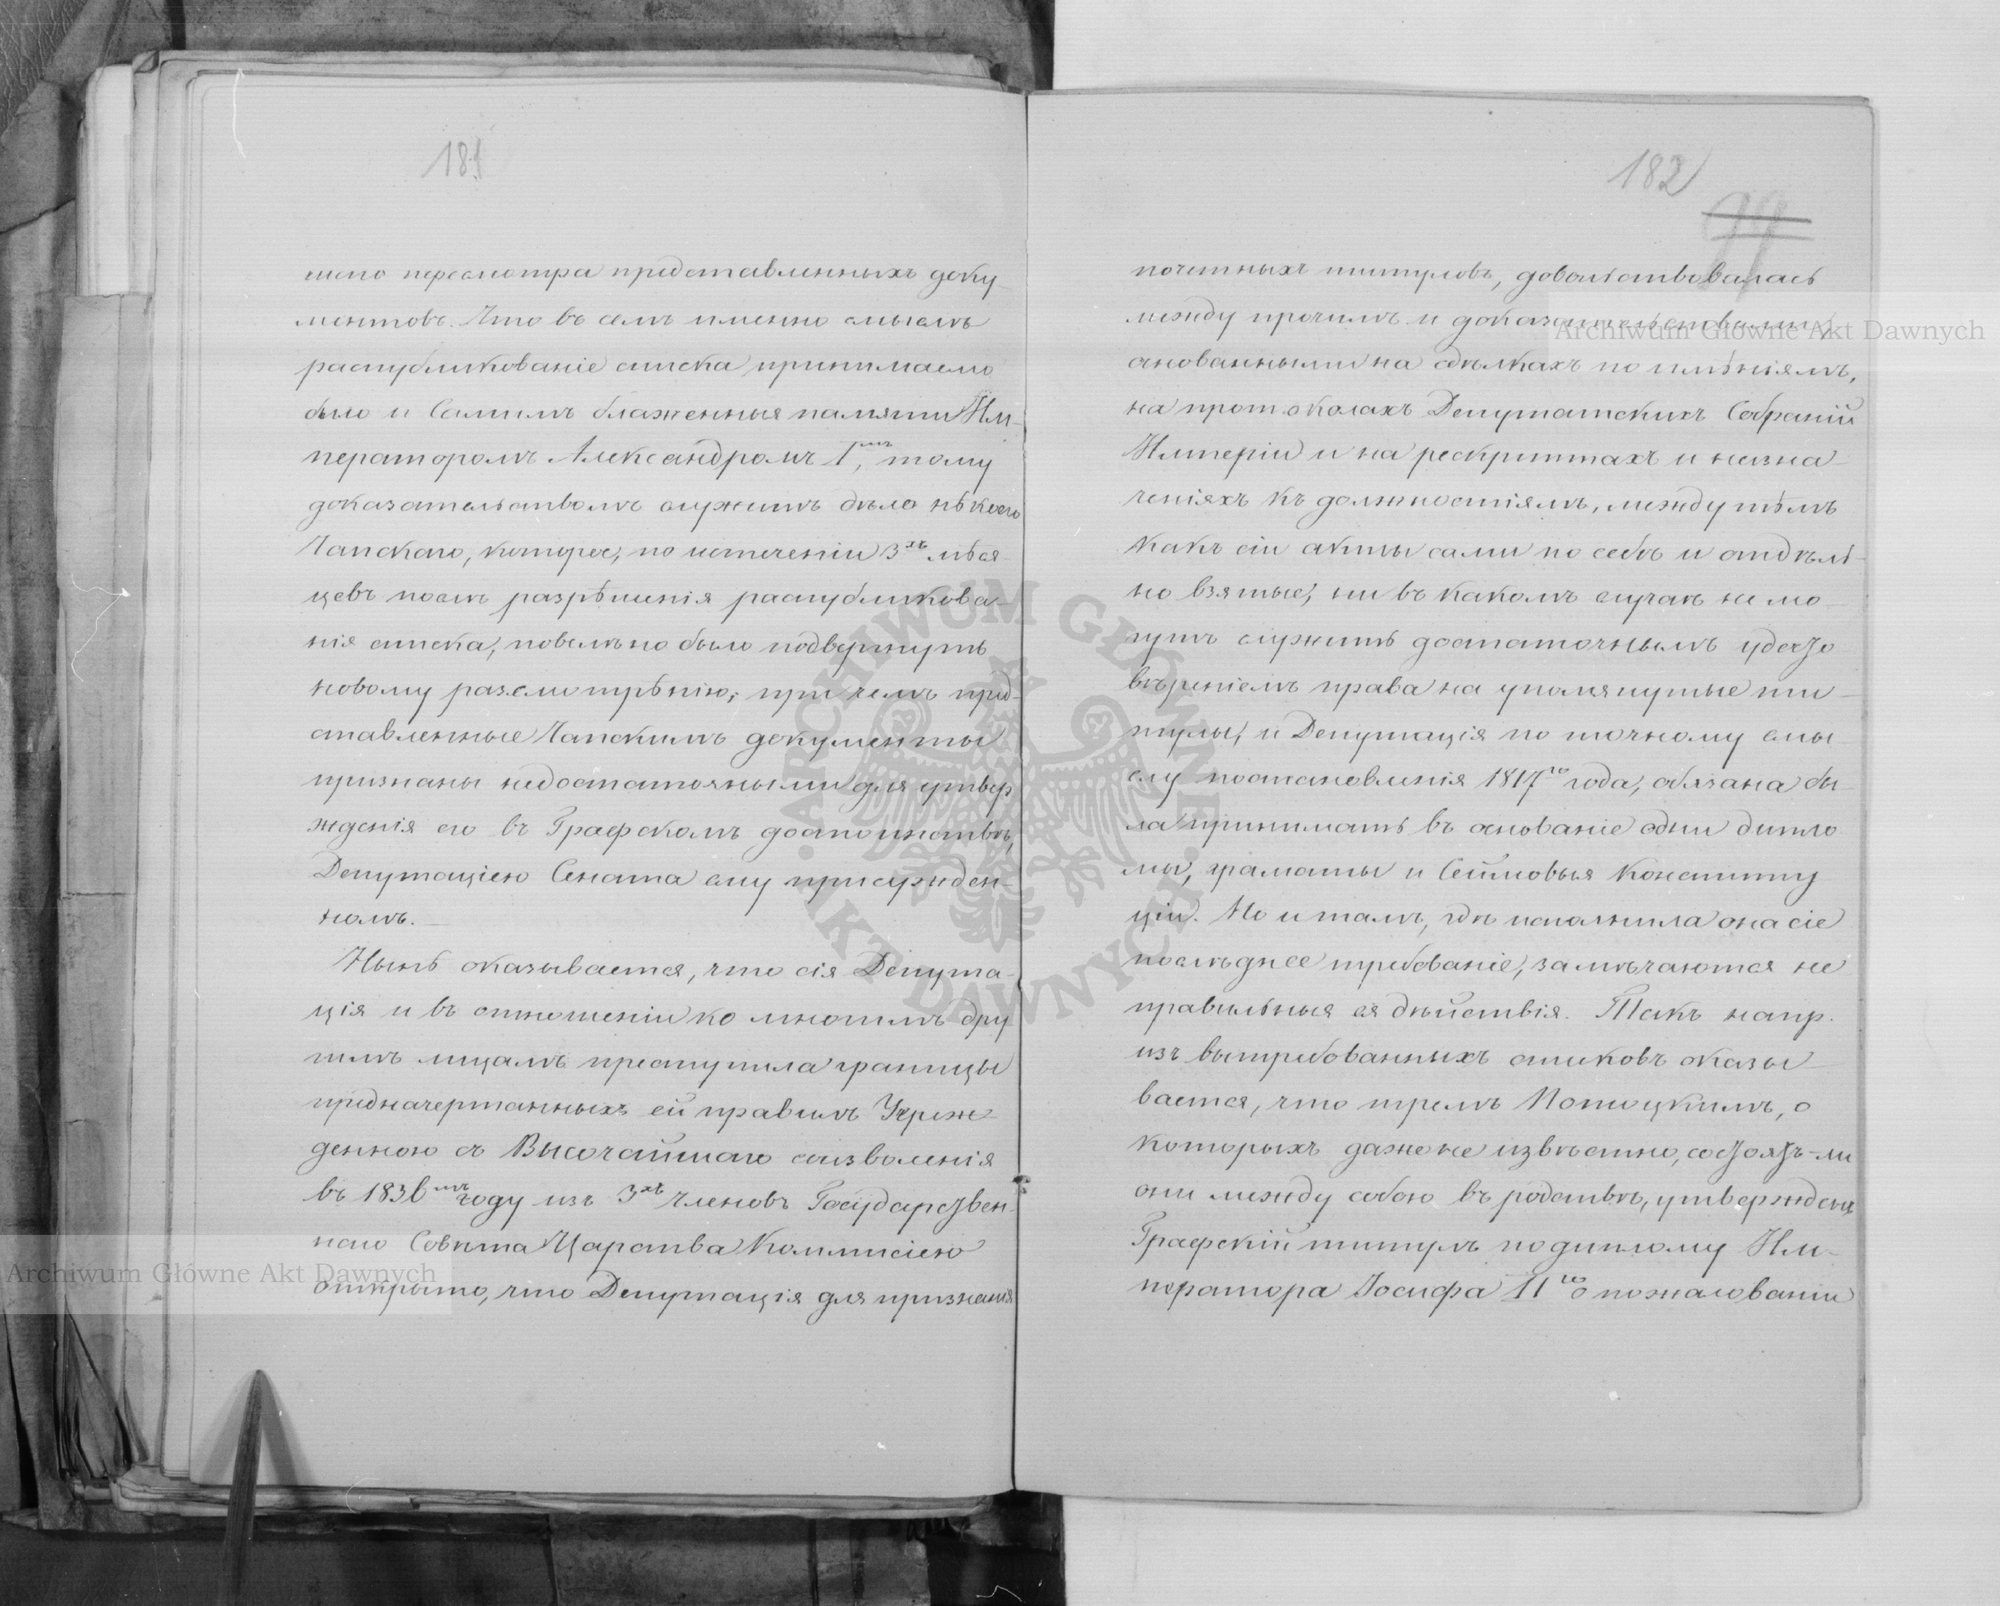 181
пересмотра представленныхъ доку-
ментовъ. Что въ семъ именно смыслѣ
распубликованіе списка принимаемо
было и Самимъ блаженныя памяти Им-
ператоромъ Александромъ I.мъ, тому
доказательствомъ служитъ дѣло нѣкоего
Лапскаго, которое, по истеченіи 3хъ мѣся-
цевъ послѣ разрѣшенія распубликова-
нія списка, повелѣно было подвергнуть
новому разсмотрѣнію; при чемъ пред-
ставленные Лапскимъ документы
признаны недостаточными для утвер
жденія его въ Графскомъ достоинствѣ,
Депутаціею Сената ему присужден-
номъ.—
Нынѣ оказывается, что сія Депута-
ція и въ отношеніи ко многимъ дру
гимъ лицамъ преступила границы
предначертанныхъ ей правилъ. Учреж-
денною съ Высочайшаго соизволенія
въ 1836мъ году изъ 3хъ Членовъ Государствен-
наго Совѣта Царства Коммисіею
открыто, что Депутація для признанія
182
99
почетныхъ титуловъ, довольствовалась
между прочимъ и доказательствами,
основанными на сдѣлкахъ по имѣніямъ,
на протоколахъ Депутатскихъ Собраній
Имперіи и на рескриптахъ и назна-
ченіяхъ къ должностямъ, между тѣмъ
какъ сіи акты сами по себѣ и отдѣль-
но взятые, ни въ какомъ случаѣ не мо-
гутъ служить достаточнымъ удосто
вѣреніемъ права на упомянутые ти-
тулы, и Депутація по точному смы-
слу постановленія 1817го года, обязана бы-
ла принимать въ основаніе одни дипло
мы, грамоты и Сеймовыя Конститу
ціи. Но и тамъ, гдѣ исполнила она сіе
послѣднее требованіе, замѣчаются не
правильныя ея дѣйствія. Такъ напр.
изъ вытребованныхъ списковъ оказы-
вается, что тремъ Потоцкимъ, о
которыхъ даже не извѣстно, состоятъ-ли
они между собою въ родствѣ, утвержденъ
Графскій титулъ по диплому Им-
ператора Іосифа II го о пожалованіи
Archiwum Główne Akt Dawnych
Archiwum Główne Akt Dawnych
ARCHIWUM GŁÓWNE · AKT DAWNYCH ·